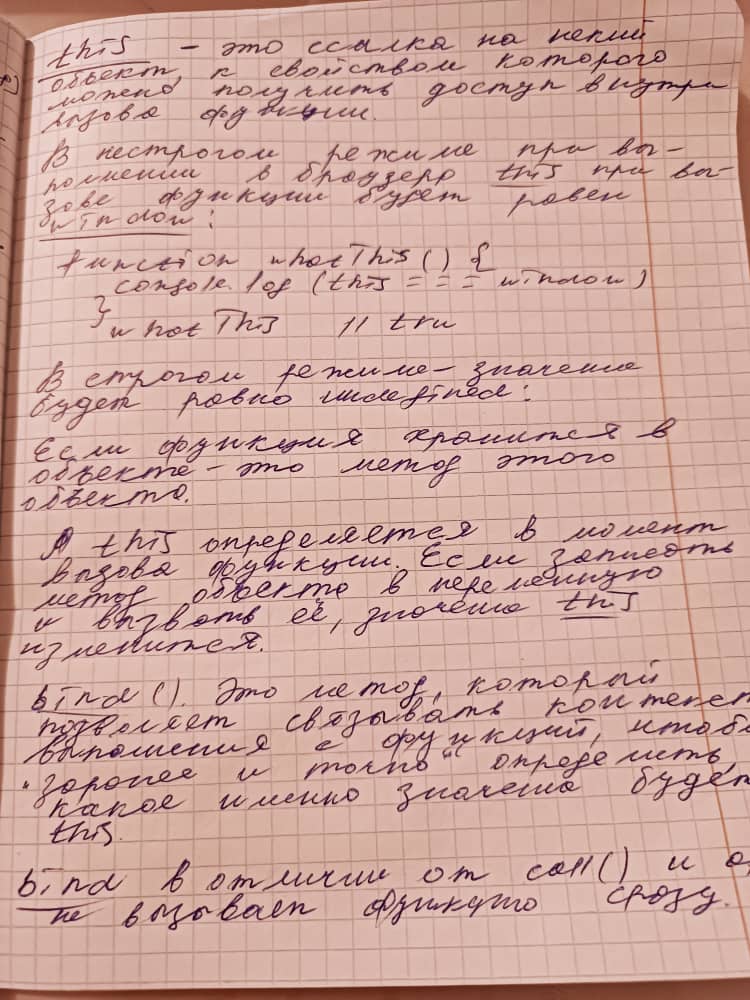 this – это ссылка на некий
объект, к свойствам которого
можно получить доступ внутри
вызова функции.
В нестрогом режиме при вы-
полнении в браузере this при вы-
зове функции будет равен
window:
function whatThis () {
console.log (this === window)
}
whatThis // tru
В строгом режиме – значение
будет равно undefined:
Если функция хранится в
объекте – это метод этого
объекта.
А this определяется в момент
вызова функции. Если записать
метод объекта в переменную
и вызвать её, значение this
изменится.
bind(). Это метод, который
позволяет связывать контекст
выполнения с функцией, чтобы
"заранее и точно" определить,
какое именно значение будет
this.
bind в отличии от call() и
не вызывает функцию сразу.